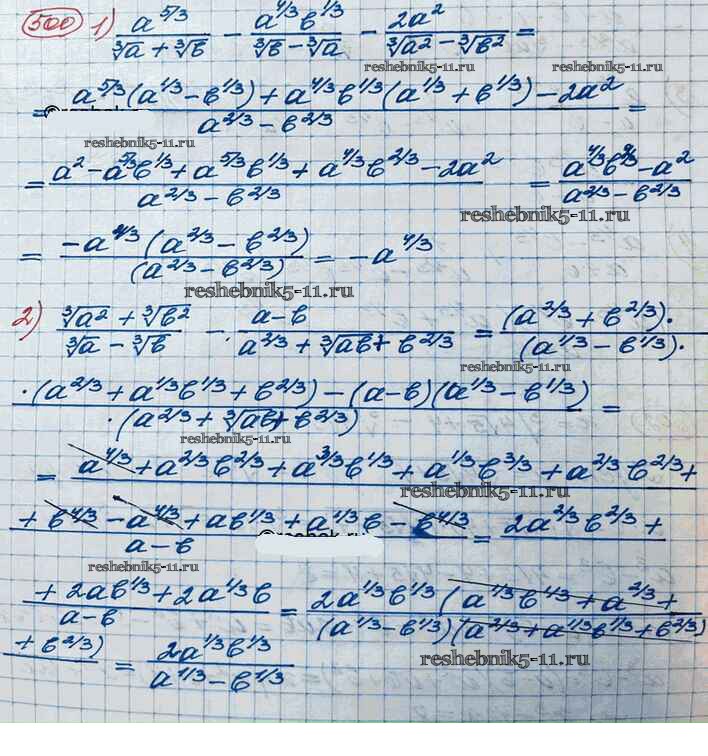 500 1) a^{5/3} / (∛a + ∛b) − a^{4/3} b^{1/3} / (∛b − ∛a) − 2a² / (∛a² − ∛b²) =
reshebnik5-11.ru reshebnik5-11.ru
= (a^{5/3} (a^{1/3} − b^{1/3}) + a^{4/3} b^{1/3} (a^{1/3} + b^{1/3}) − 2a²) / (a^{2/3} − b^{2/3}) =
reshebnik5-11.ru
= (a² − a^{5/3} b^{1/3} + a^{5/3} b^{1/3} + a^{4/3} b^{2/3} − 2a²) / (a^{2/3} − b^{2/3}) = (a^{4/3} b^{2/3} − a²) / (a^{2/3} − b^{2/3})
reshebnik5-11.ru reshebnik5-11.ru
= −a^{4/3} (a^{2/3} − b^{2/3}) / (a^{2/3} − b^{2/3}) = −a^{4/3}
reshebnik5-11.ru
2) (∛a² + ∛b²) / (∛a − ∛b) − (a − b) / (a^{2/3} + ∛ab + b^{2/3}) = (a^{2/3} + b^{2/3})· / (a^{1/3} − b^{1/3})·
reshebnik5-11.ru
·(a^{2/3} + a^{1/3} b^{1/3} + b^{2/3}) − (a − b)(a^{1/3} − b^{1/3}) / ·(a^{2/3} + ∛ab + b^{2/3}) =
reshebnik5-11.ru
= a^{4/3} + a^{2/3} b^{2/3} + a^{3/3} b^{1/3} + a^{1/3} b^{3/3} + a^{2/3} b^{2/3} +
reshebnik5-11.ru
+ b^{4/3} − a^{4/3} + ab^{1/3} + a^{1/3} b − b^{4/3} / (a − b) = 2a^{2/3} b^{2/3} +
reshebnik5-11.ru
+ 2ab^{1/3} + 2a^{1/3} b / (a − b) = 2a^{1/3} b^{1/3} (a^{1/3} b^{1/3} + a^{2/3} + / (a^{1/3} − b^{1/3})(a^{2/3} + a^{1/3} b^{1/3} + b^{2/3})
+ b^{2/3}) = 2a^{1/3} b^{1/3} / (a^{1/3} − b^{1/3})
reshebnik5-11.ru